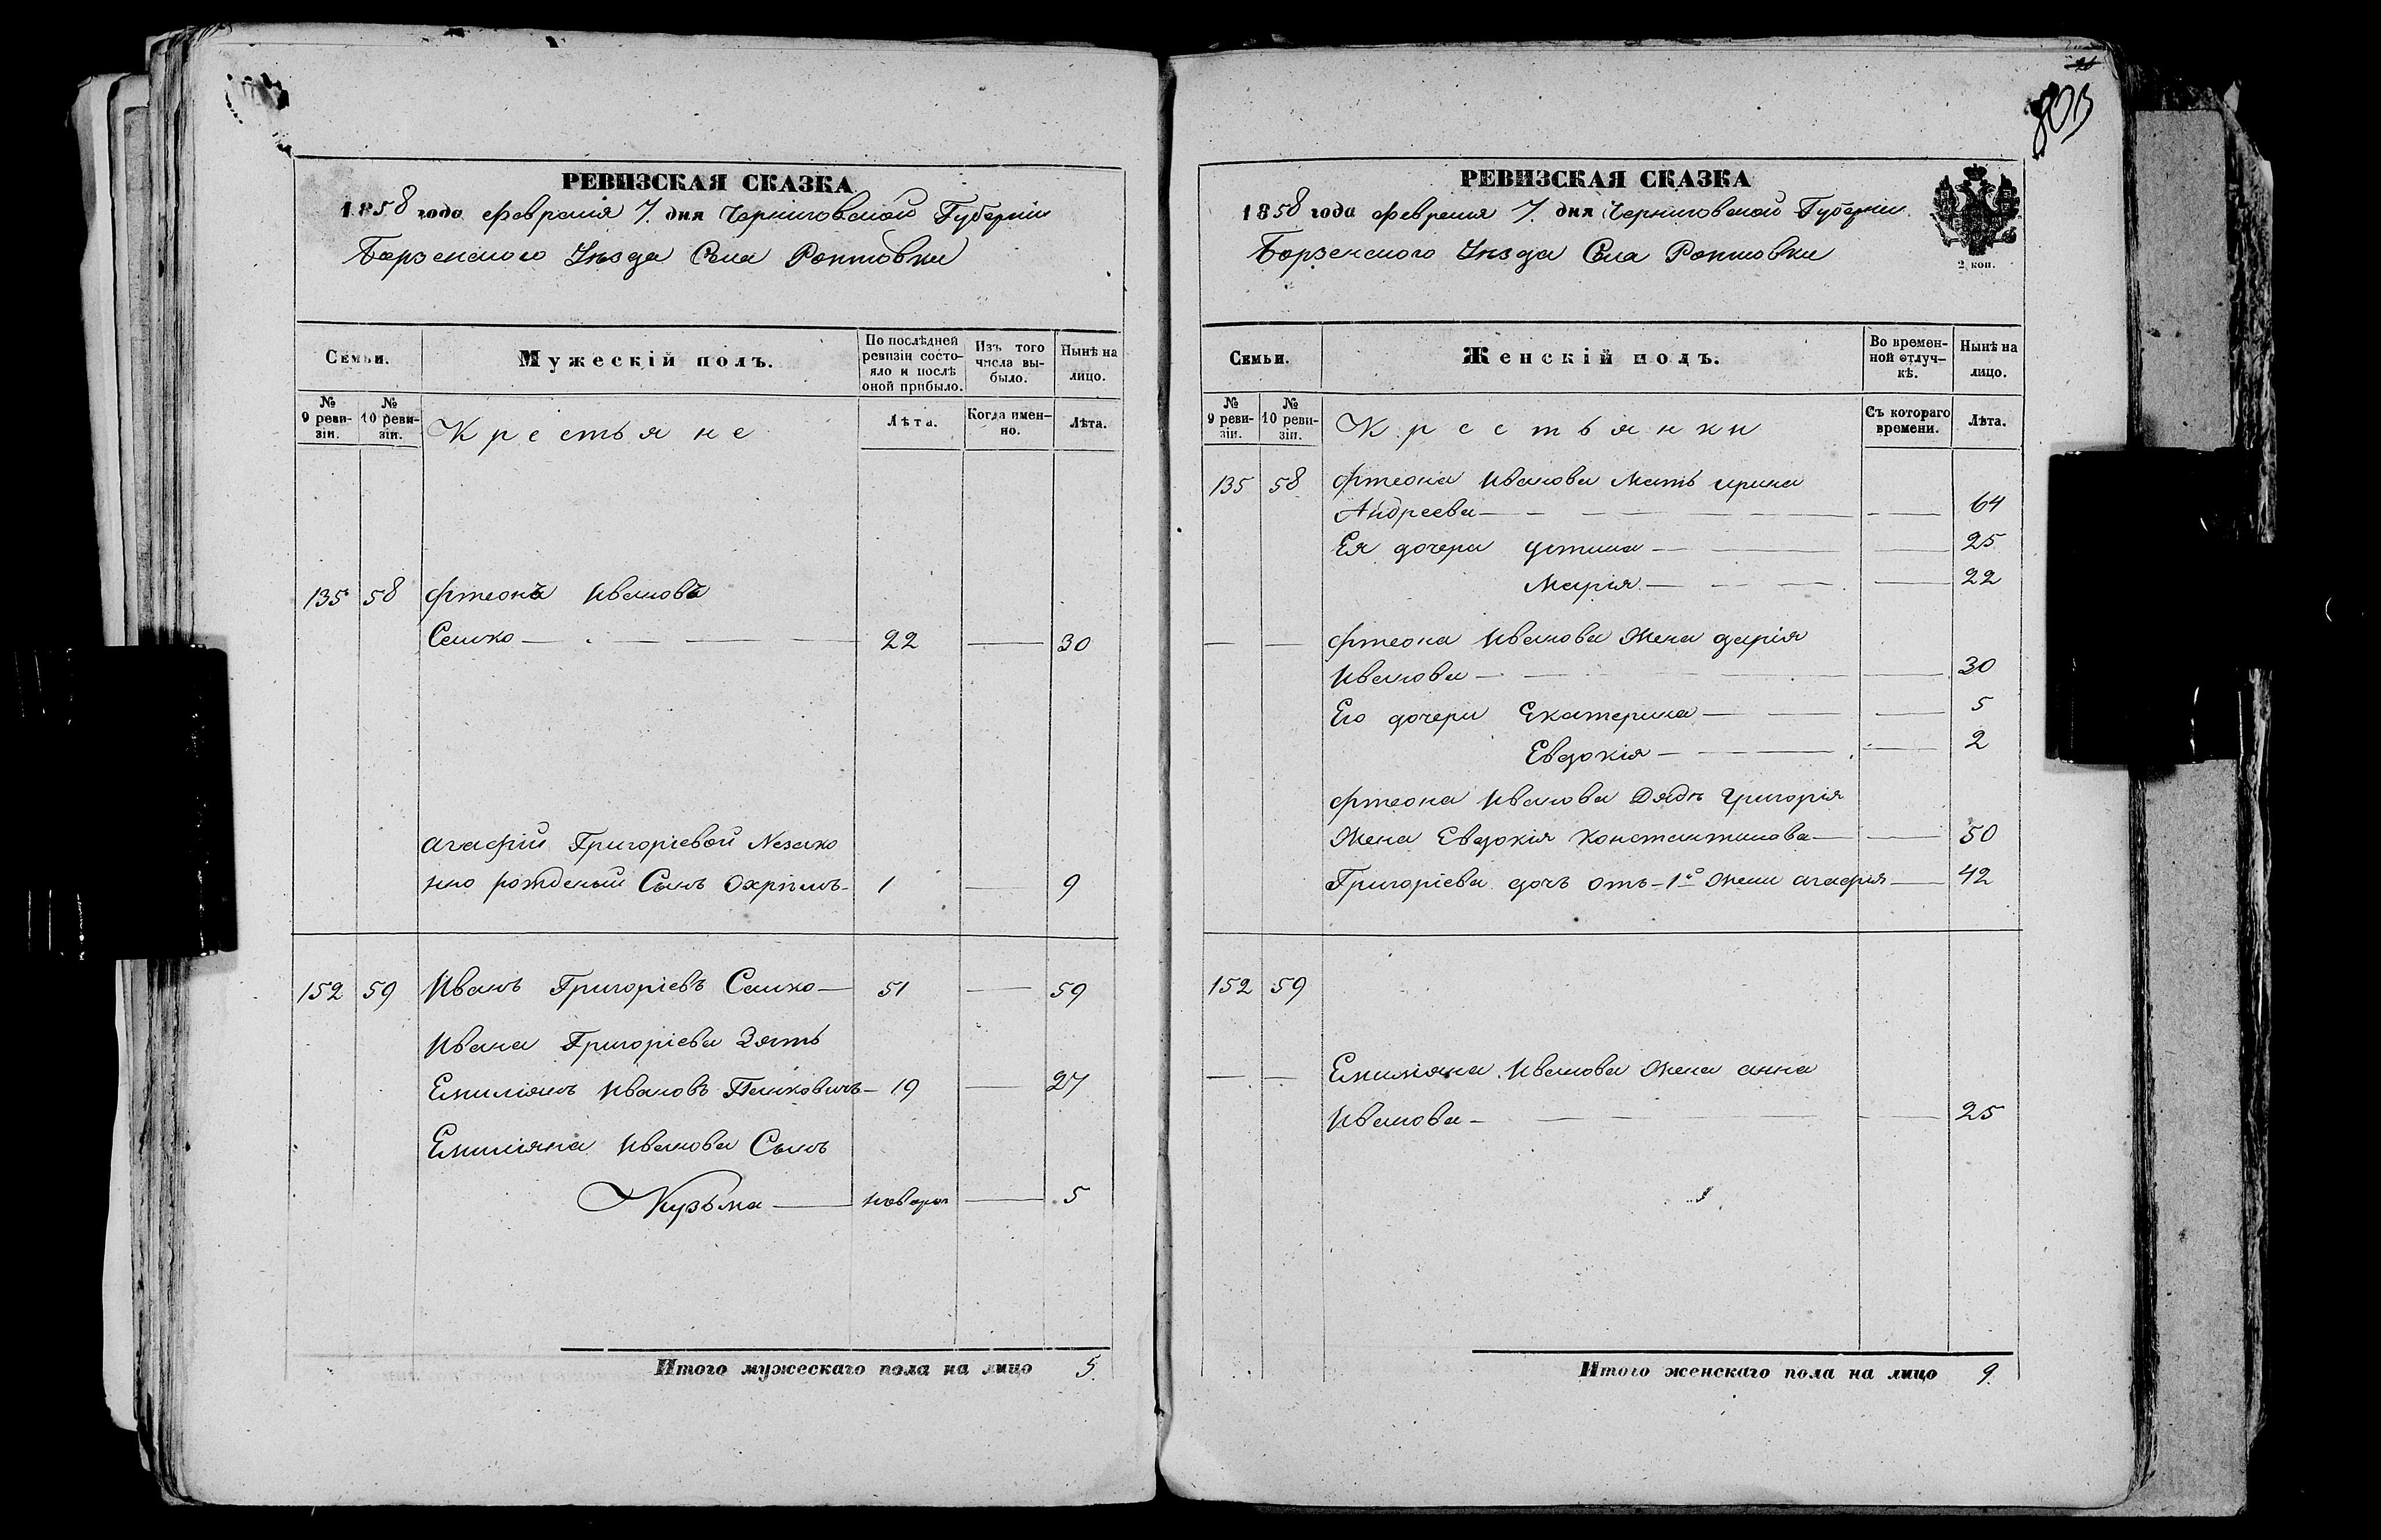 РЕВИЗСКАЯ СКАЗКА
1858 года февраля 7. дня Черниговской Губерніи
Борзенского Уѣзда Села
Семьи.
Мужескій полъ.
По послѣдней ревизіи состояло и послѣ оной прибыло.
Изъ того числа выбыло.
Нынѣ на лицо.
№ 9 ревизіи.
№ 10 ревизіи.
Крестьяне
Лѣта.
Когда именно.
Лѣта.
135 58 Фтеонъ Ивановъ
Сашко — 22 — 30
агафіи Григоріевой Незако
нно рожденый Сынъ Охрімъ - 1 — 9
152 59 Иванъ Григоріевъ Сашко — 51 — 59
Ивана Григоріева Зять
Емиліянъ Ивановъ — 19 — 27
Емиліяна Иванова Сынъ
Кузьма — новорож — 5
Итого мужескаго пола на лицо 5.
803
РЕВИЗСКАЯ СКАЗКА
1858 года февраля 7. дня Черниговской Губерніи.
Борзенского Уѣзда Села
2 коп.
Семьи.
Женскій полъ.
Во временной отлучкѣ.
Нынѣ на лицо.
№ 9 ревизіи.
№ 10 ревизіи.
Крестьянки
Съ котораго времени.
Лѣта.
135 58 Фтеона Иванова Мать ирина
Андреева — — 64
Ея дочери устина — — 25
Марія — — 22
— — Фтеона Иванова Жена дарія
Иванова — — 30
Его дочери Екатерина — — 5
Евдокія — — 2
Фтеона Иванова Дяди Григорія
Жена Евдокія Константинова — — 50
Григоріева дочь отъ 1й Жени агафія — 42
152 59
— — Емиліяна Иванова Жена анна
Иванова — — 25
Итого женскаго пола на лицо 9.